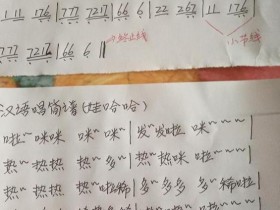 1 11 176 | 777 7217 | 66 6 | 22 267 | 11 176
终止线
小节线
777 7217 | 66 6 ‖
汉语唱简谱（娃哈哈）
啦~ 咪咪 咪~ 咪~ | 发~发啦 咪~ ~ ~
热~ 热热 热~ 多~ | 热~热咪 啦~ ~ ~
热~ 热热 热啦稀 | 多~多多 多~稀啦